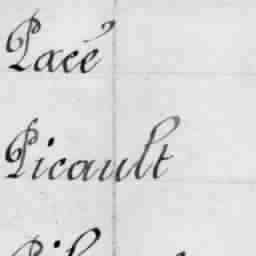 Pacé
Picault